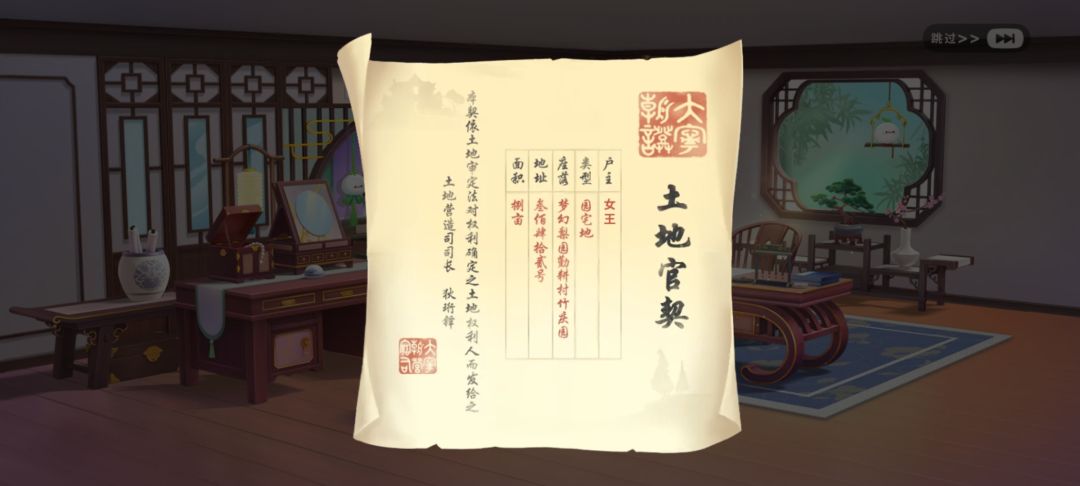 跳过>>
土地官契
户主 女王
类型 园宅地
座落 梦幻梨园勤耕村竹庆园
地址 叁佰肆拾贰号
面积 捌亩
本契依土地审定法对权利确定之土地权利人而发给之
土地营造司司长 狄珩铎